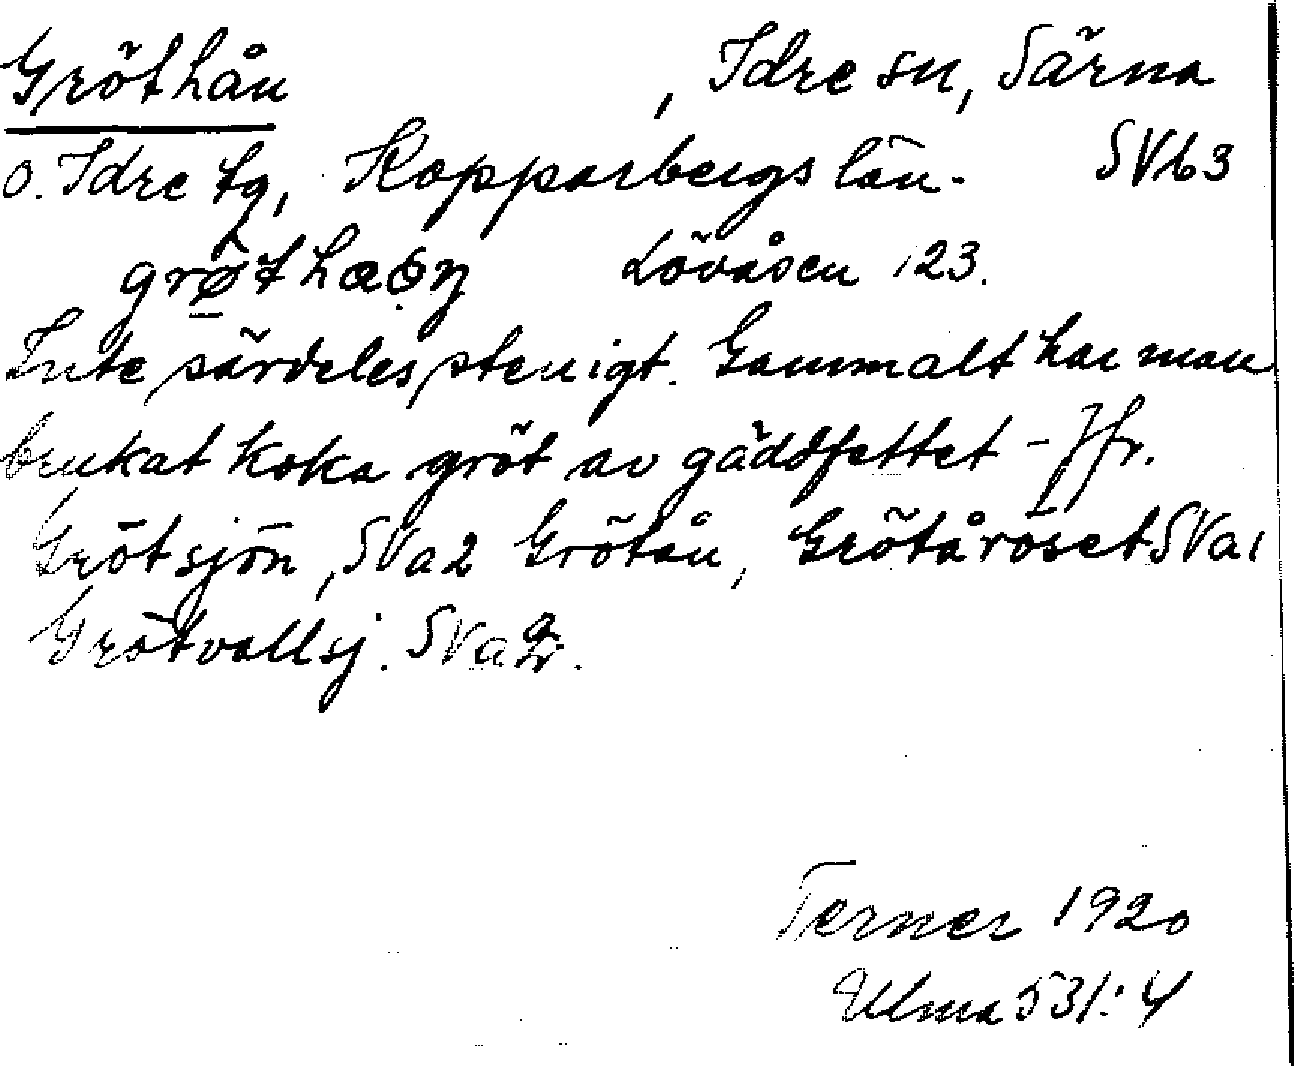 Gröthån , Idre sn, Särna
o. Idre tg, Kopparbergs län. SVb3
Lövåsen 123.
Inte särdeles stenigt. Gammalt har man
brukat koka gröt av gäddfettet – Jfr.
Grötsjön, SVa2 Grötån, Grötåröset SVa1
Grötvallsj. SVa2.
Terner 1920
Ulma 531:4